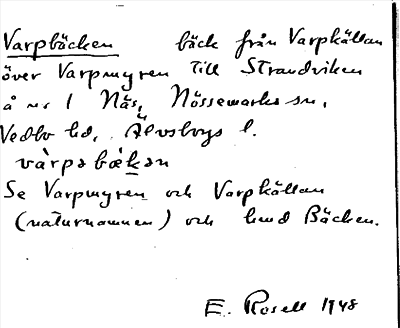 Varpbäcken bäck från Varpkällan
över Varpmyren till Strandviken
å nr 1 Näs, Nössemarks sn,
Vedbo hd, Älvsborgs l.
vàrpəbækən
Se Varpmyren och Varpkällan
(naturnamnen) och hmd Bäcken.
E. Rosell 1948